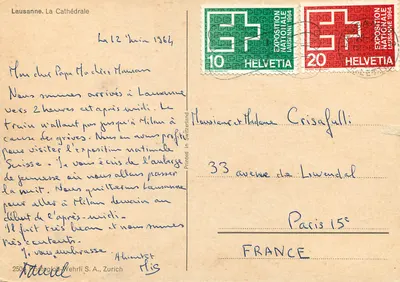 Lausanne. La Cathédrale
Le 12 Juin 1964
Mon cher Papa Ma chère Maman
Nous sommes arrivés à Lausanne
vers 2 heures cet après-midi. Le
train n'allant pas jusqu'à Milan à
cause des grèves. Nous en avons profité
pour visiter l'exposition nationale
Suisse. Je vous écris de l'auberge
de jeunesse où nous allons passer
la nuit. Nous quitterons Lausanne
pour aller à Milan demain au
début de l'après-midi.
Il fait très beau et nous sommes
très contents.
Je vous embrasse
A bientôt
Wehrli S. A., Zurich
Printed in Switzerland
EXPOSITION
NATIONALE
LAUSANNE 1964
10 HELVETIA
EXPOSITION
NATIONALE
LAUSANNE 1964
20 HELVETIA
Monsieur et Madame Crisafulli
33 avenue de Lowendal
Paris 15e
FRANCE